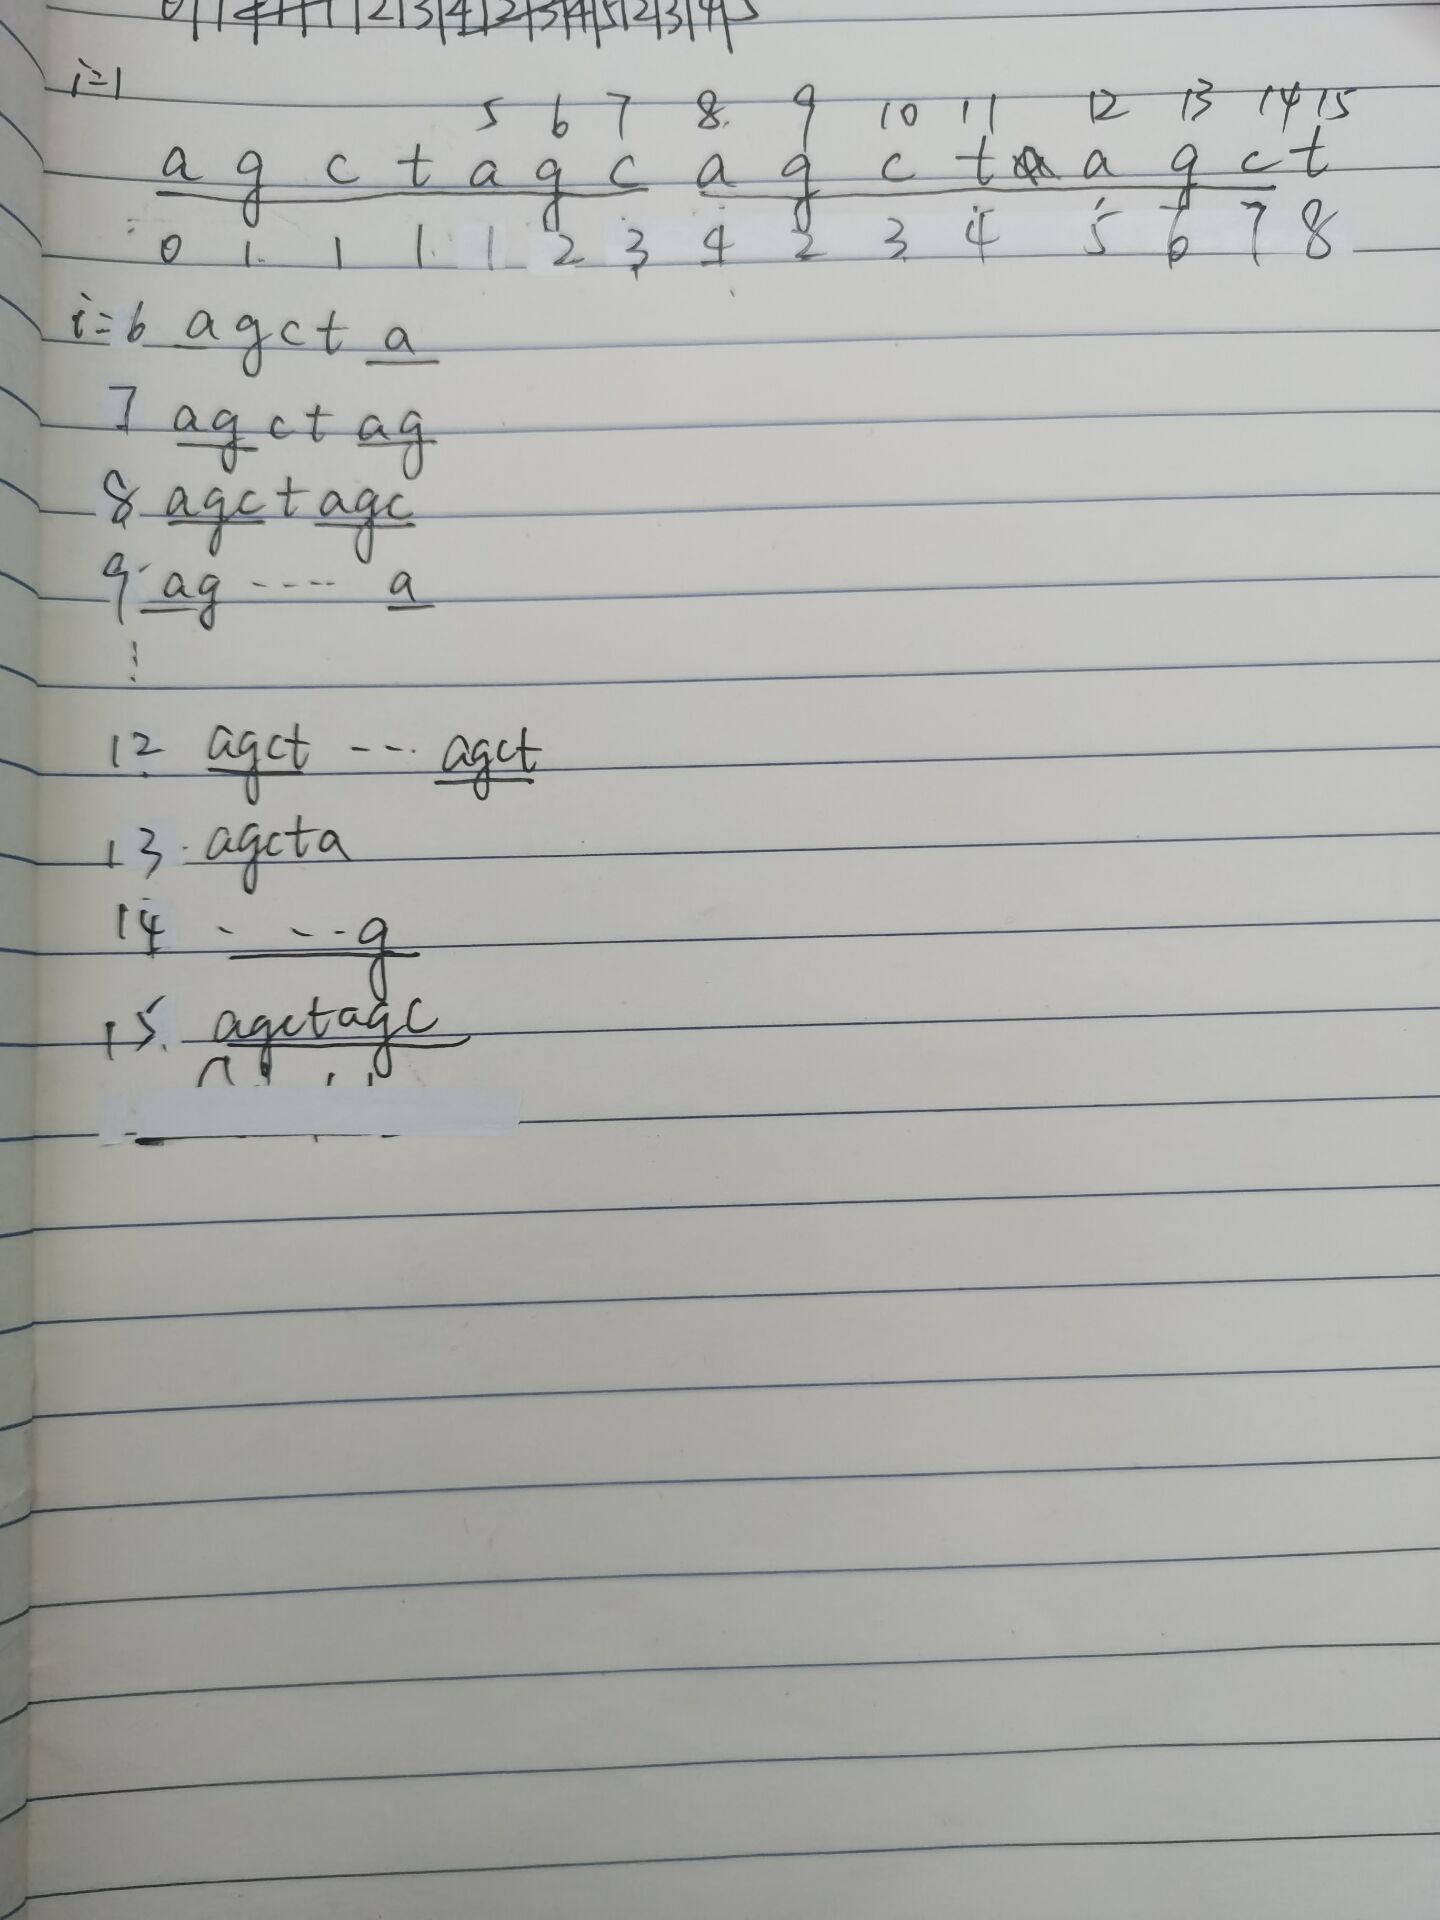 i=1
5 6 7 8. 9 10 11 12 13 14 15
a g c t a g c a g c t a g c t
0 1. 1 1. 1 2 3 4 2 3 4 5 6 7 8
i=6 a g c t a
7 ag ct ag
8 agc t agc
9 ag ---- a
⋮
12 agct --- agct
13. agcta
14 - --- g
15. agctagc